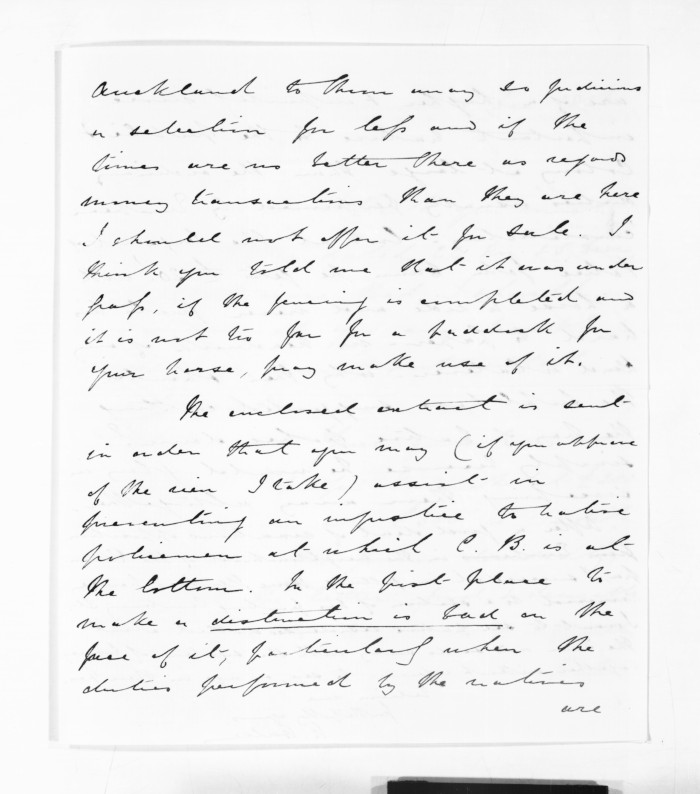 Auckland to throw away so judicious
a selection for less and if the
times are no better there as regards
money transactions than they are here
I should not offer it for sale. I
think you told me that it was under
grass, if the fencing is completed and
it is not too far for a paddock for
your horse, pray make use of it.
The enclosed extract is sent
in order that you may (if you approve
of the view I take) assist in
preventing an injustice to native
policemen at which C. B. is at
the bottom. In the first place to
make a distinction is bad on the
face of it, particularly when the
duties performed by the natives
are